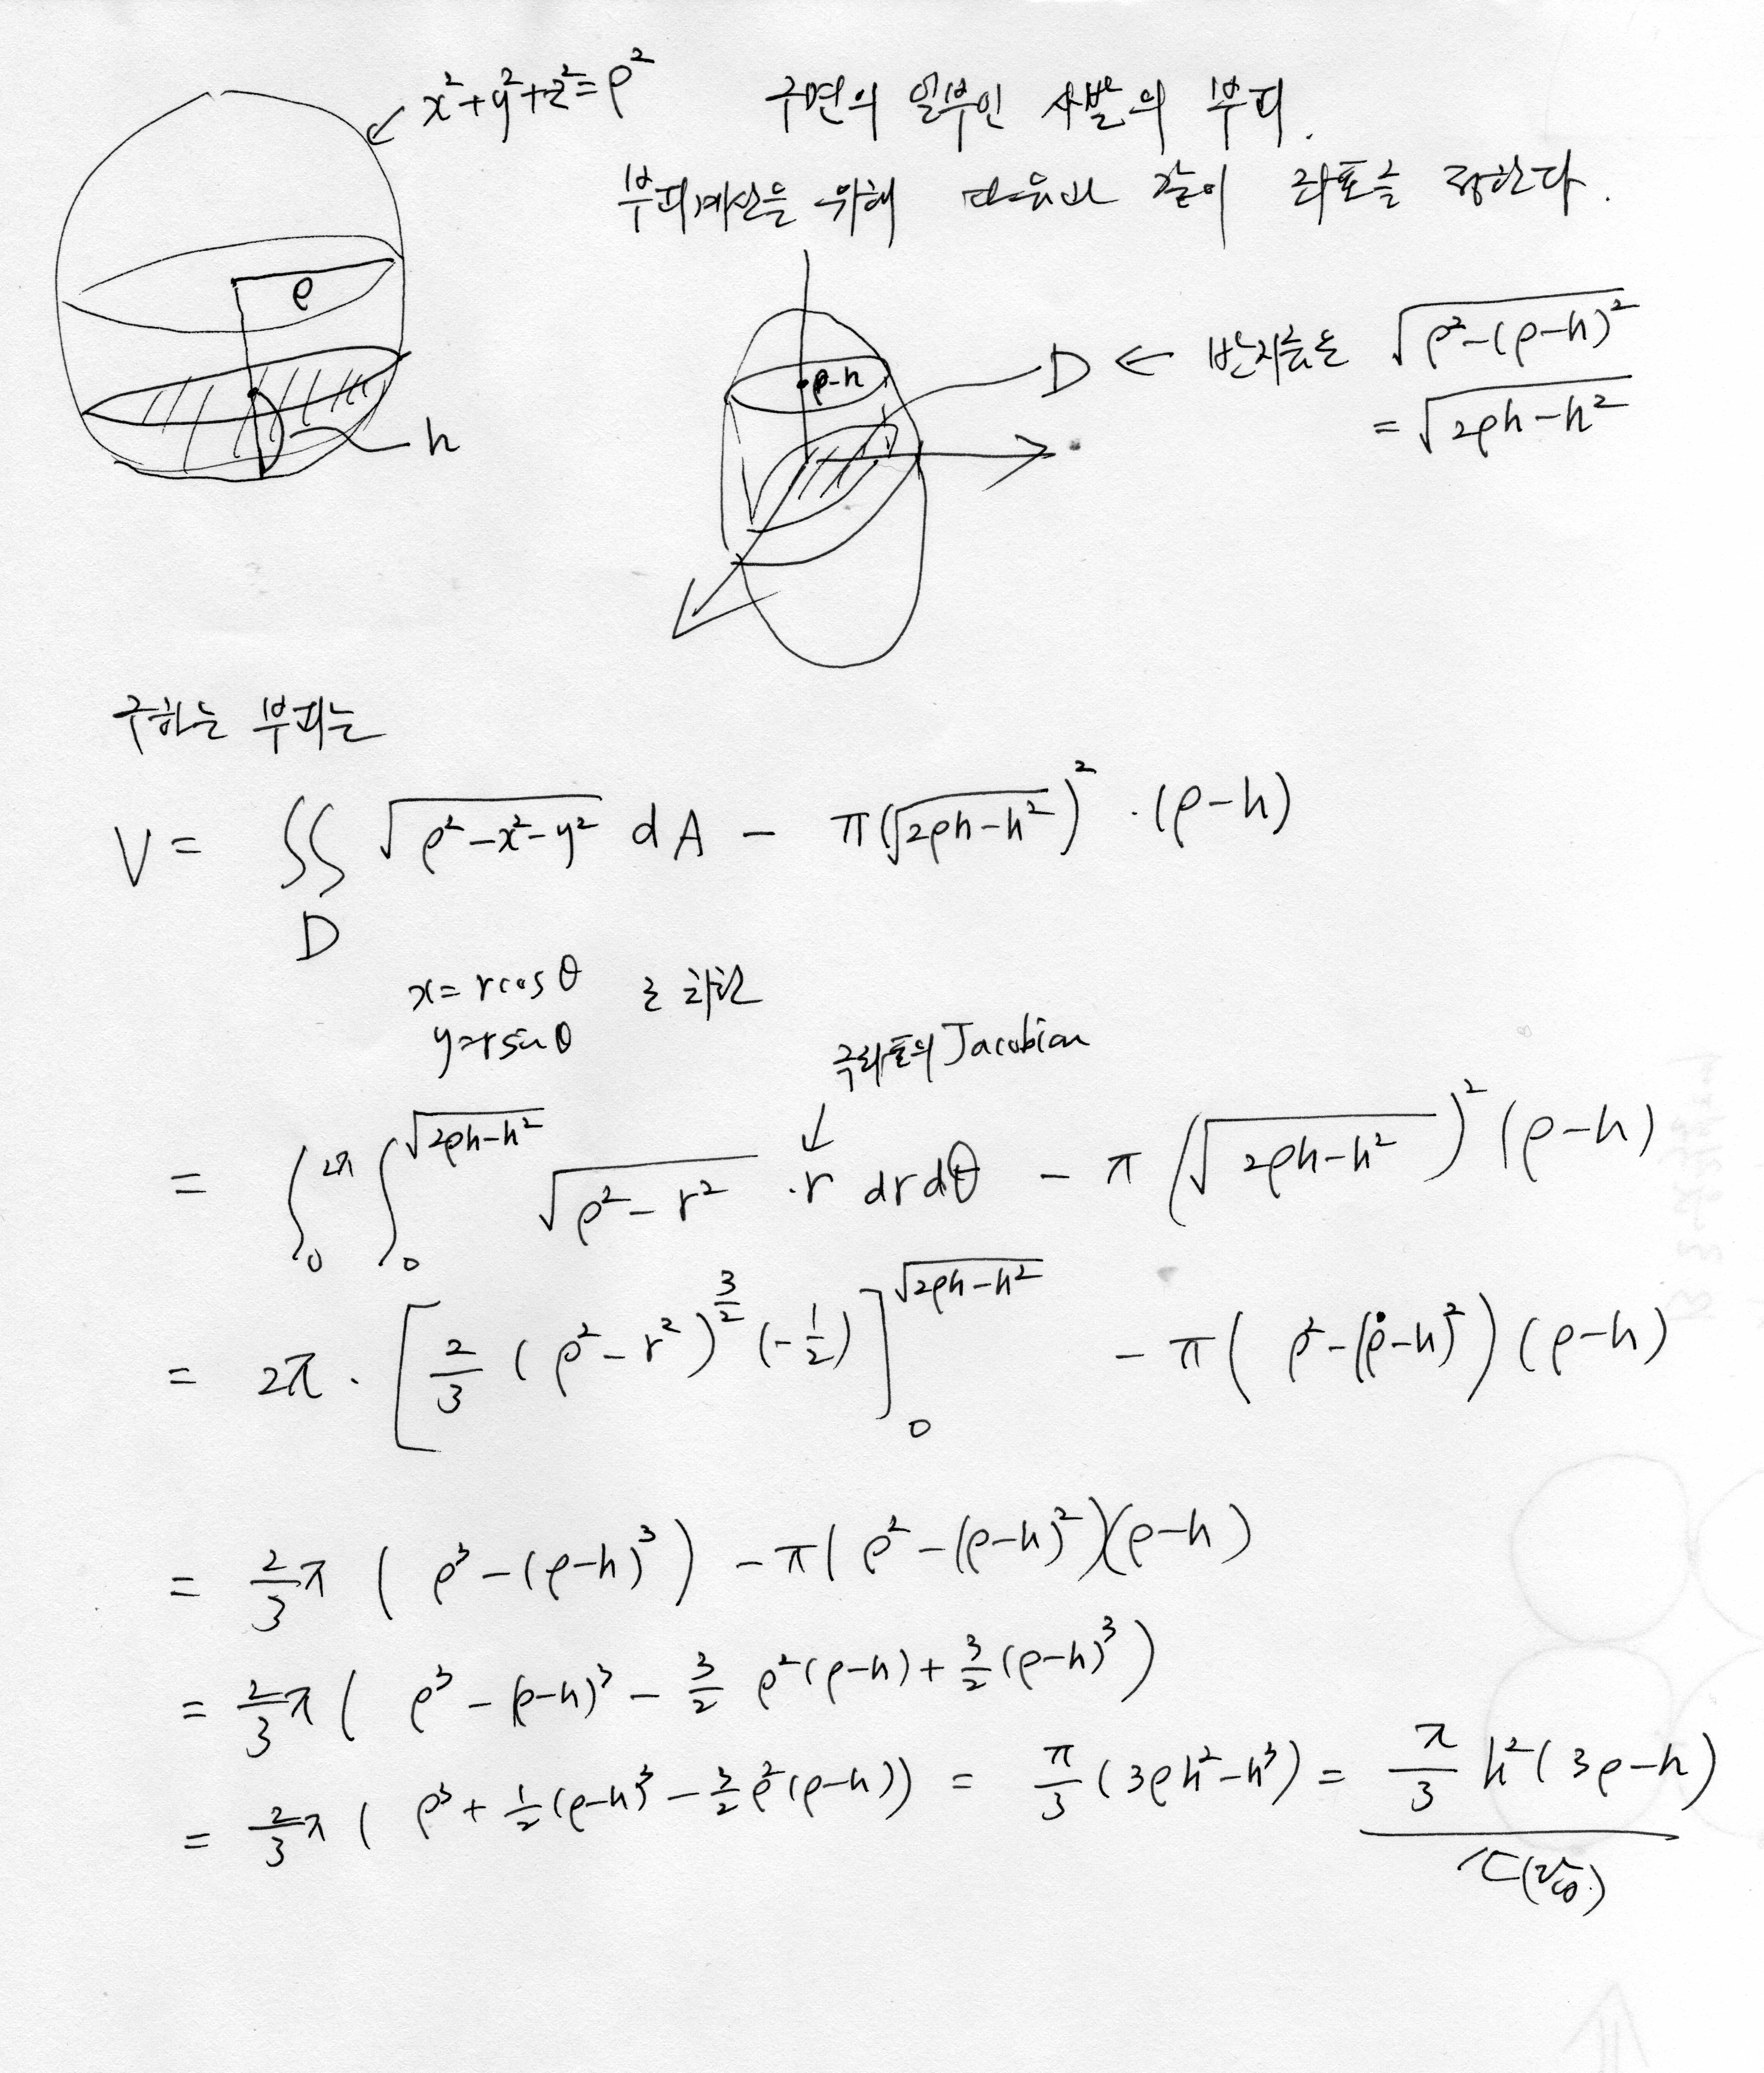 x²+y²+z²=ρ²
구면의 일부인 사발의 부피.
부피계산을 위해 다음과 같이 좌표를 정한다.
ρ
h
ρ-h
D ← 반지름은 √(ρ²-(ρ-h)²)
= √(2ρh-h²)
구하는 부피는
V = ∬_D √(ρ²-x²-y²) dA - π(√(2ρh-h²))² · (ρ-h)
x = r cos θ
y = r sin θ
로 치환
극좌표의 Jacobian
↓
= ∫₀^{2π} ∫₀^{√(2ρh-h²)} √(ρ²-r²) · r dr dθ - π(√(2ρh-h²))² (ρ-h)
= 2π · [ 2/3 (ρ²-r²)^{3/2} (-1/2) ]₀^{√(2ρh-h²)} - π(ρ²-(ρ-h)²)(ρ-h)
= 2/3 π (ρ³-(ρ-h)³) - π(ρ²-(ρ-h)²)(ρ-h)
= 2/3 π (ρ³-(ρ-h)³ - 3/2 ρ²(ρ-h) + 3/2 (ρ-h)³)
= 2/3 π (ρ³ + 1/2 (ρ-h)³ - 3/2 ρ²(ρ-h)) = π/3 (3ρh²-h³) = π/3 h²(3ρ-h)